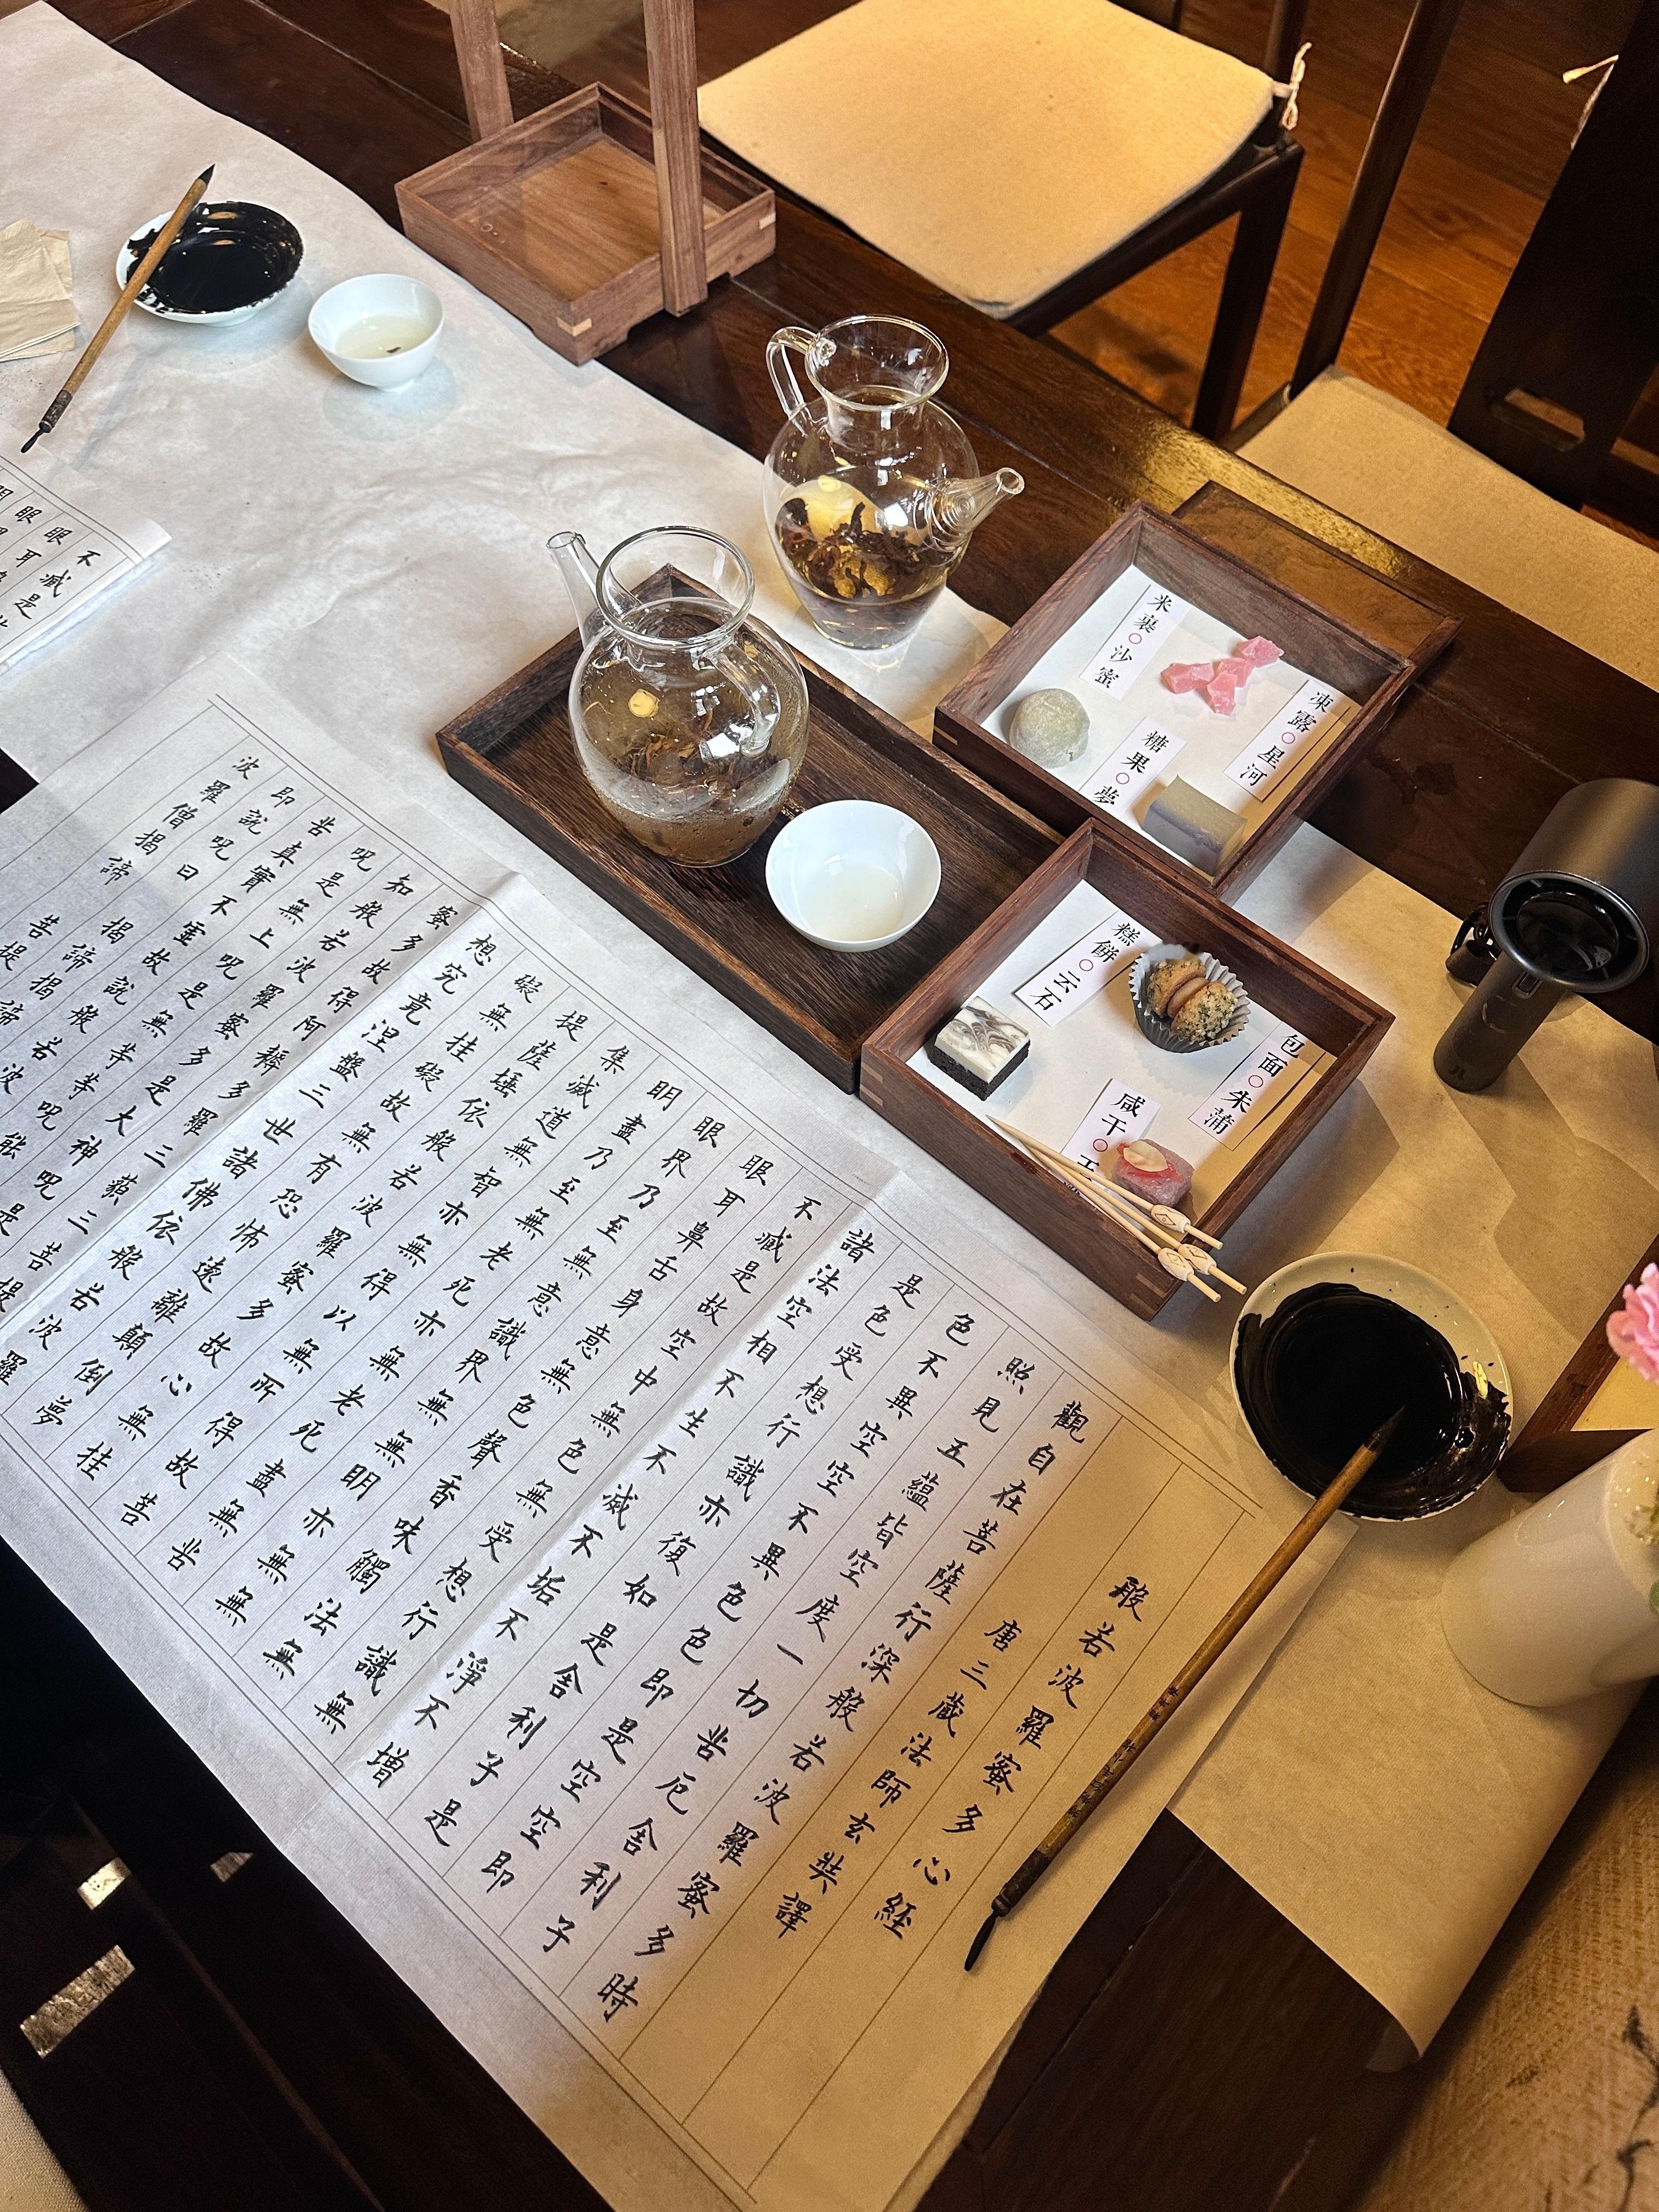 般若波羅蜜多心經
唐三藏法師玄奘譯
觀自在菩薩行深般若波羅蜜多時
照見五蘊皆空度一切苦厄舍利子
色不異空空不異色色即是空空即
是色受想行識亦復如是舍利子是
諸法空相不生不滅不垢不淨不增
不滅是故空中無色無受想行識無
眼耳鼻舌身意無色聲香味觸法無
眼界乃至無意識界無無明亦無無
明盡乃至無老死亦無老死盡無苦
集滅道無智亦無得以無所得故菩
提薩埵依般若波羅蜜多故心無桂
礙無桂礙故無有恐怖遠離顛倒夢
想究竟涅盤三世諸佛依般若波羅
蜜多故得阿耨多羅三藐三菩提
知般若波羅蜜多是大神呪是
呪是無上呪是無等等呪能
苦真實不虛故說般若波
即說呪曰 揭諦揭諦
波羅僧揭諦 菩提
不滅是
眼耳
眼
米裹○沙蜜
凍露○星河
糖果○夢
糕餅○云石
包面○朱蒲
咸干○